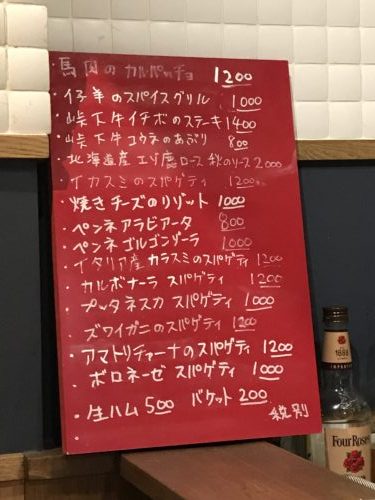 ・馬肉のカルパッチョ 1200
・仔羊のスパイスグリル 1000
・峠下牛イチボのステーキ 1400
・峠下牛コウネのあぶり 800
・北海道産エゾ鹿ロース 秋のソース 2000
・イカスミのスパゲティ 1200
・焼きチーズのリゾット 1000
・ペンネアラビアータ 800
・ペンネゴルゴンゾーラ 1000
・イタリア産カラスミのスパゲティ 1200
・カルボナーラ スパゲティ 1200
・プッタネスカ スパゲティ 1000
・ズワイガニのスパゲティ 1200
・アマトリチャーナのスパゲティ 1200
・ボロネーゼ スパゲティ 1000
・生ハム 500 バケット 200
・税別
1888
Four Roses